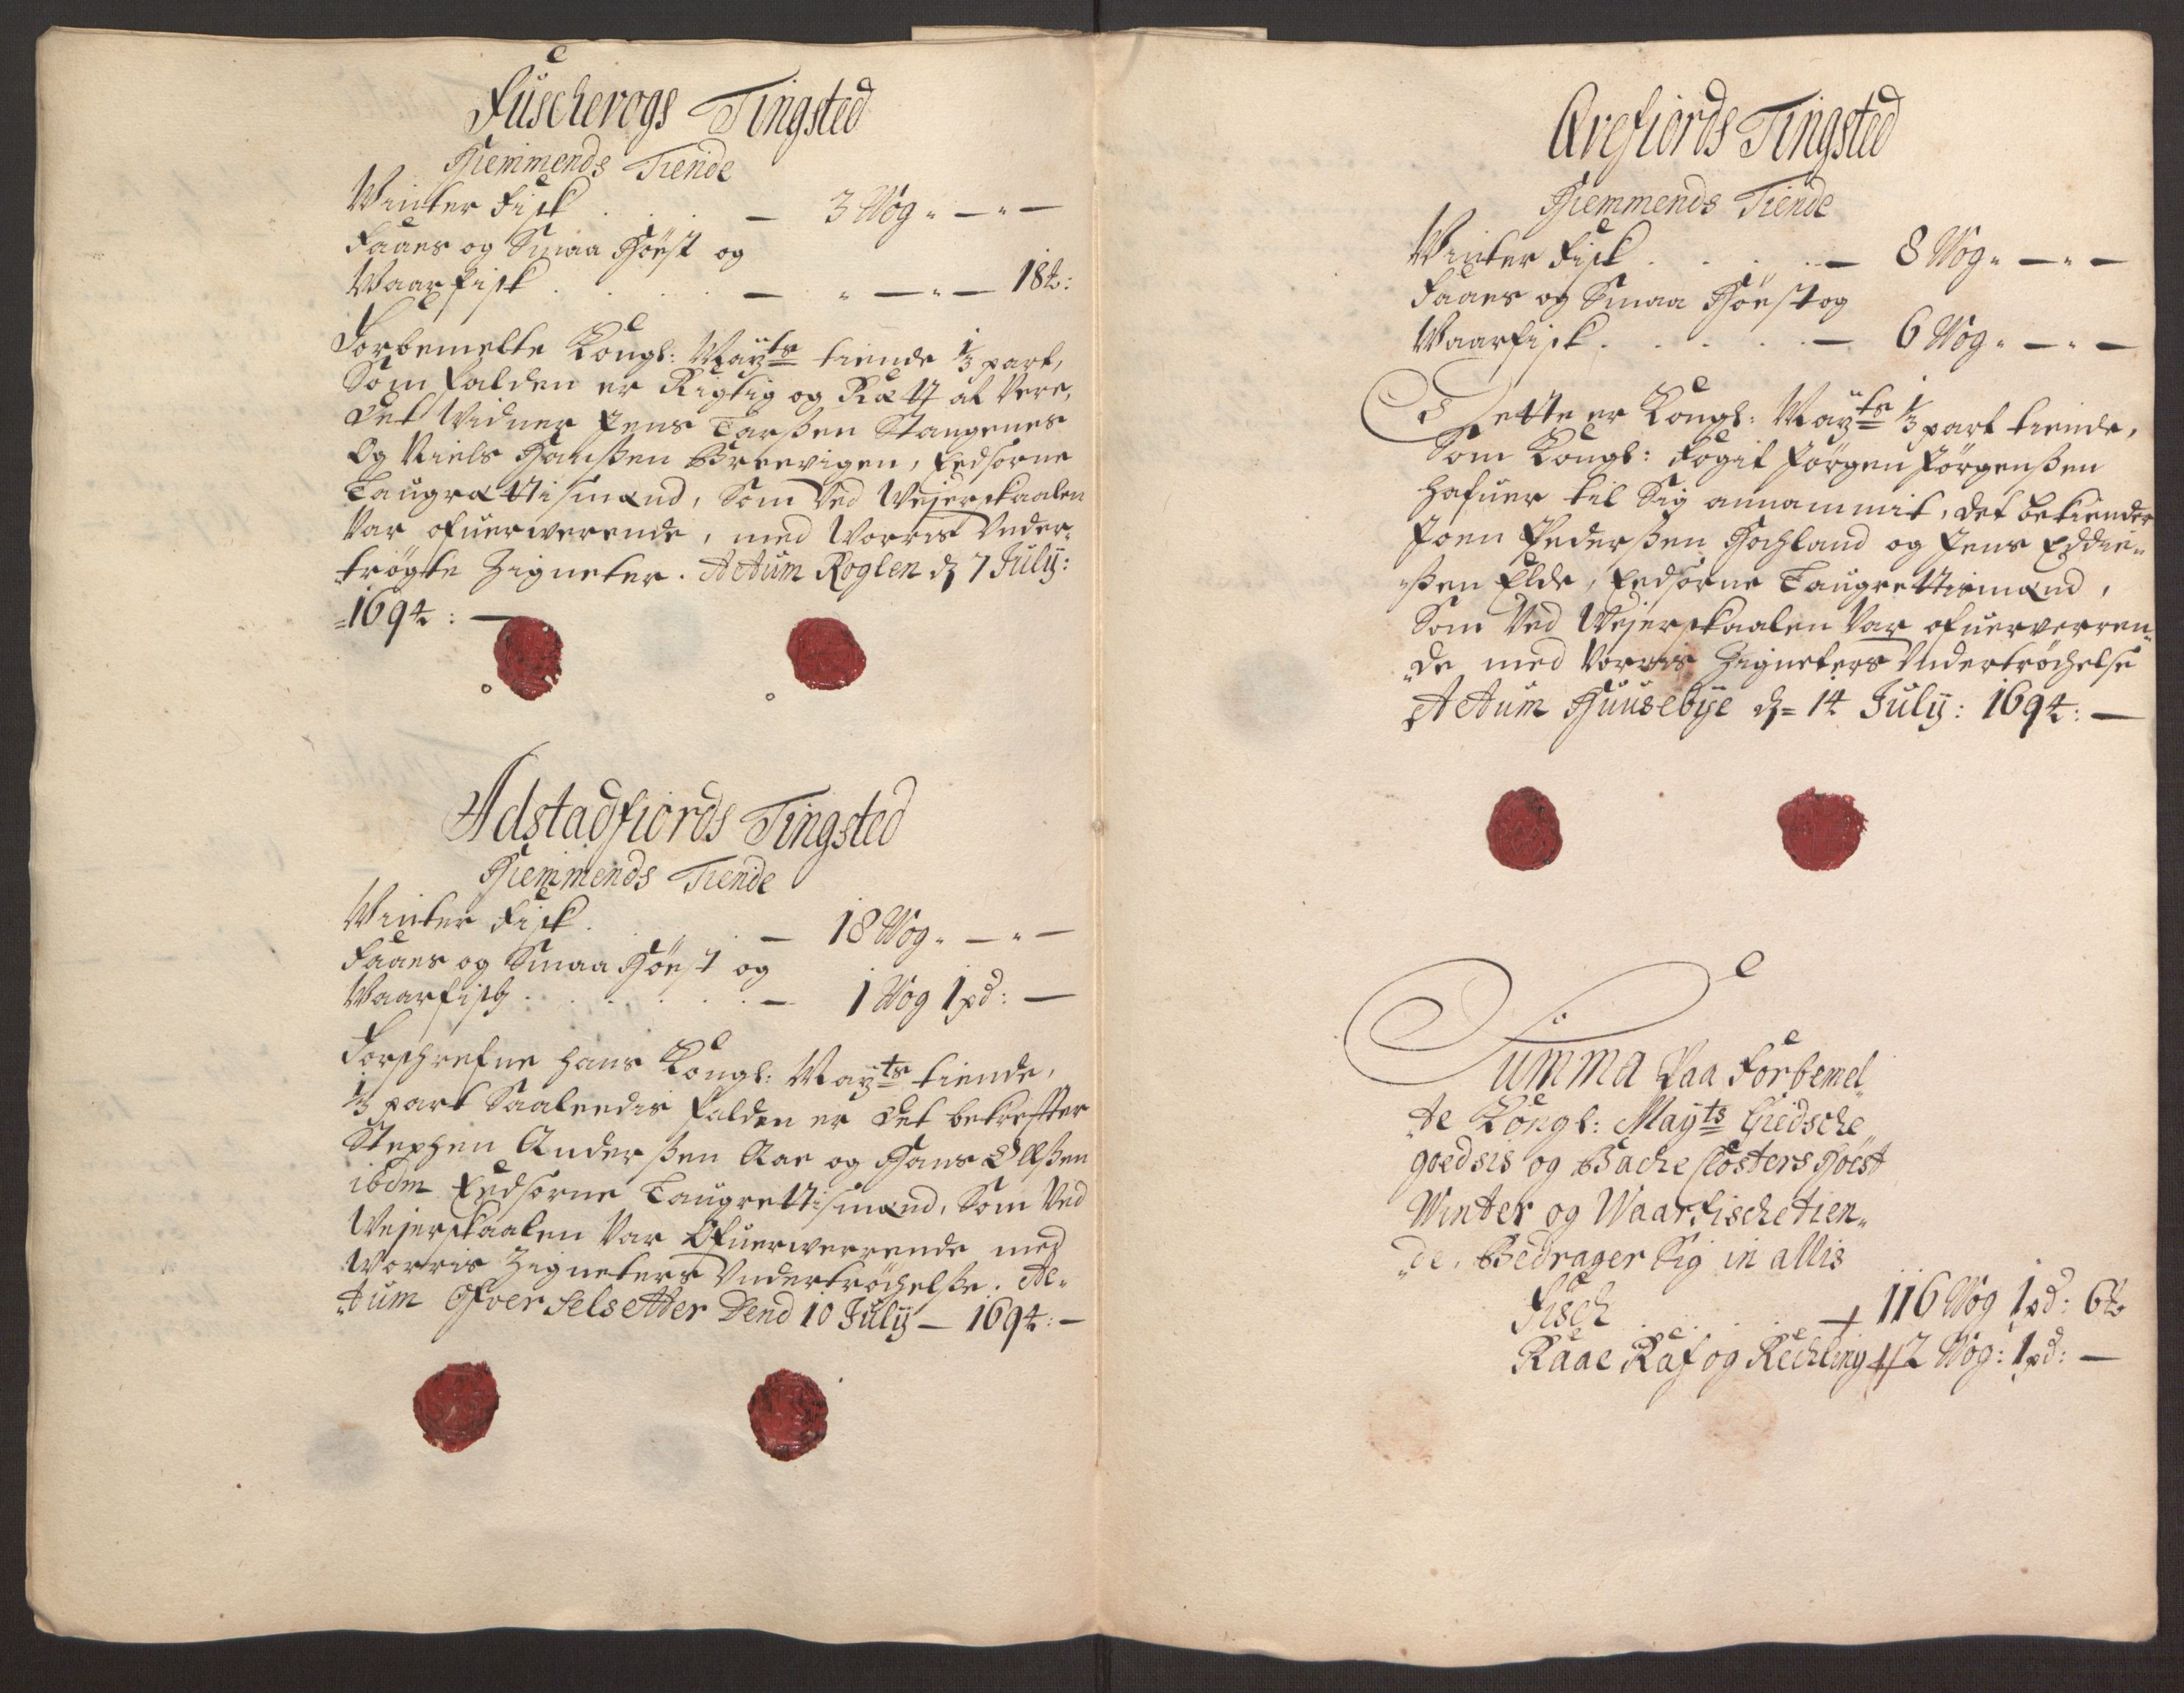 Fuscherogs Tingsted
Hiemmends Tiende
Winter Fisk . . . — 3 Wog " — " —
Faaer og Smaa Høst og
Waarfisk . . . . — " — " — 18 ℔:
Forbemelte Kongl: Mayts tiende ⅓ part,
Som falden er Rigtig og Rætt at Vere,
Det Vidner Jens Larßen Stangenes
Og Niels Hanßen Breevigen, Eedsorne
Laugrættismænd, Som Ved Wejerskaalen
Var ofuerwerende, med Worris Vnder-
trøgte Zigneter. Actum Roglen d 7 July:
1694: —
Adstadfiords Tingsted
Hiemmends Tiende
Winter Fisk . . . — 18 Wog " — " —
Faaer og Smaa Høst og
Waarfisk . . . . . — 1 Wog 1 pd: —
Forschrefne hans Kongl: Mayts tiende,
⅓ part Saaleedis falden er Det bekrefter
Stephen Anderßen Aae og Hans Olßen
ibdm Eedsorne Laugrettismænd, Som Ved
Wejerskaalen Var Ofuerwerrende med
Worris Zigneters Vndertrøchelße. Ac-
tum Ofver Selsetter Dend 10 July — 1694: —
Qvefiords Tingsted
Hiemmends Tiende
Winter Fisk . . . . — 8 Wog " — " —
Faaer og Smaa Høst og
Waarfisk . . . . . — 6 Wog " — " —
Dette er Kongl: Mayts ⅓ part tiende,
Som Kongl: Fogit Jørgen Jørgenßen
hafuer til Sig annammit, det bekiender
Joen Pederßen Hochland og Jens Eddie-
ßen Elde, Eedsorne Laugrettismænd,
Som Ved Wejerskaalen Var ofuerverren-
de med Vorris Zigneters Vndertrøchelse
Actum Huusebye d= 14 July: 1694: —
Summa Paa Forbemel
te Kongl: Mayts Giedsche
goedsis og Bache Closters Høest
Winter og Waarfische tien-
de, Bedrager Sig in allis
Fisch . . . . . — 116 Wog 1 pd: 6 ℔
Raae Raf og Rechling 12 Wog: 1 pd: —